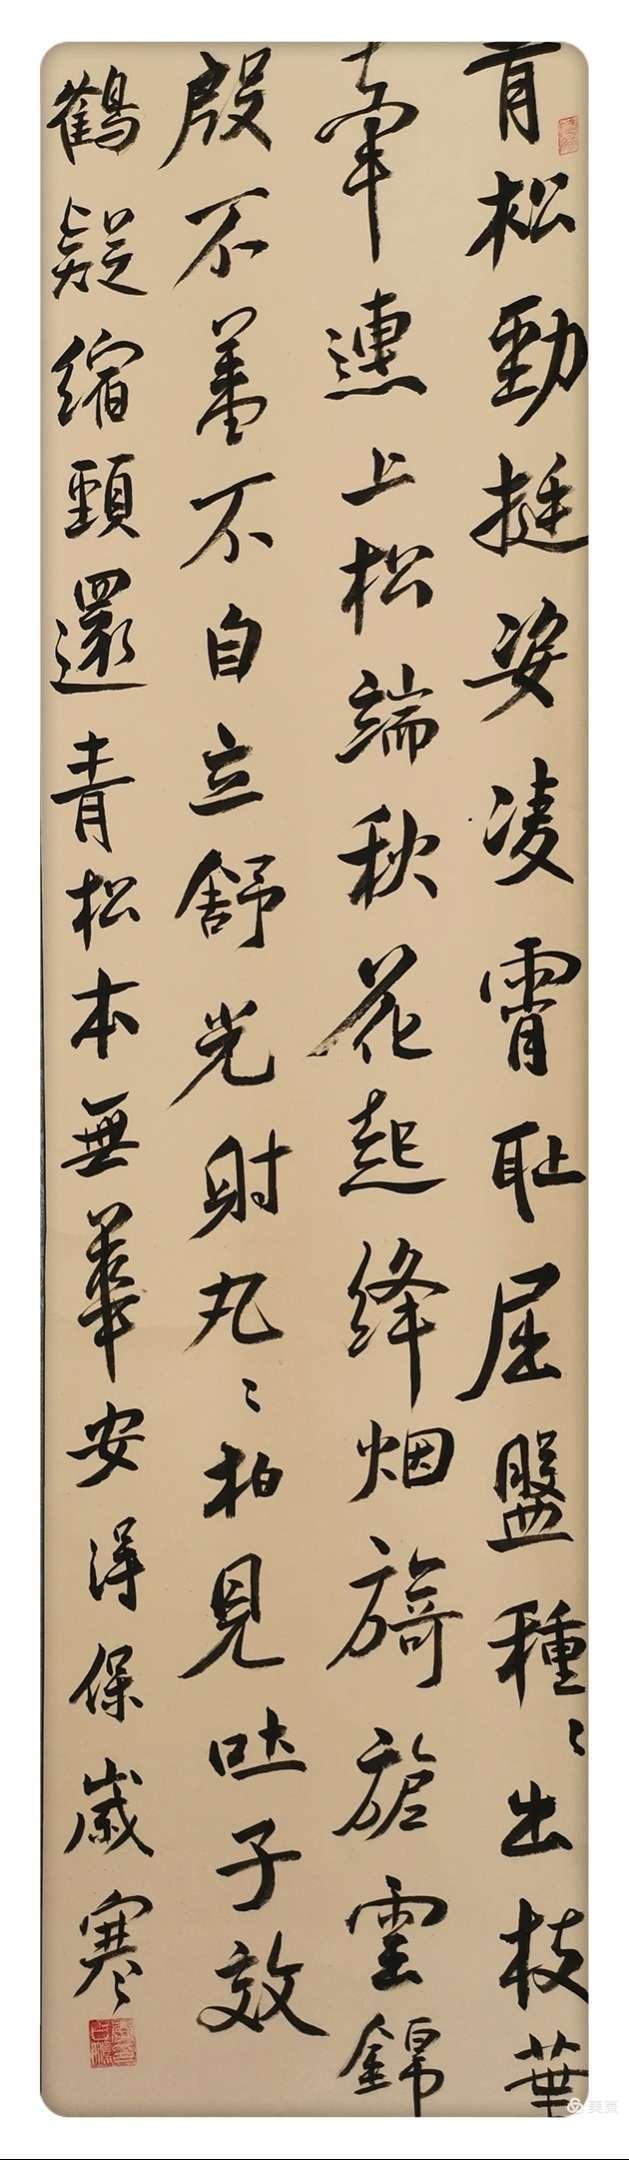 青松勁挺姿凌霄耻屈盤種〻出枝華
牽連上松端秋花起絳烟旖旎雲錦
殷不羞不自立舒光射丸〻柏見吐子效
鶴疑縮頸還青松本無華安得保歲寒
美篇